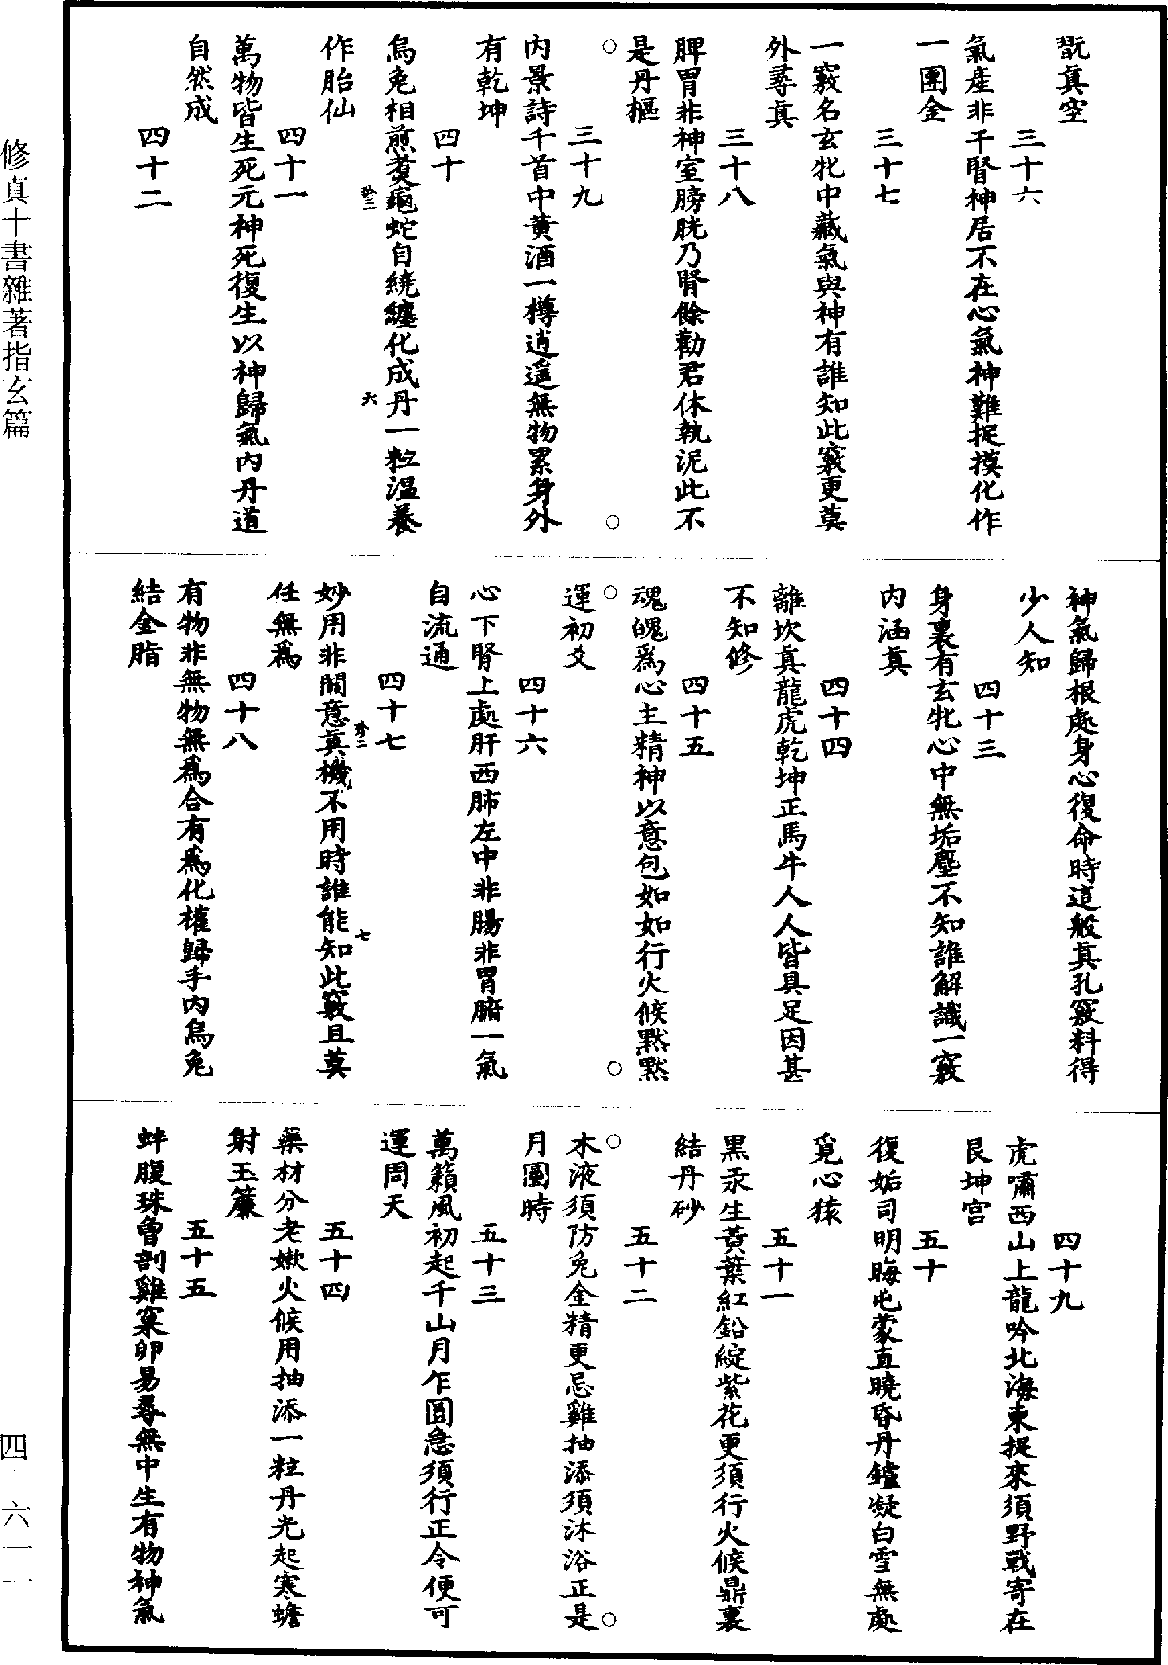 翫真空
三十六
氣產非干腎神居不在心氣神難捉摸化作
一團金
三十七
一竅名玄牝中藏氣與神有誰知此竅更莫
外尋真
三十八
脾胃非神室膀胱乃腎餘勸君休執泥此不
是丹樞
三十九
內景詩千首中黃酒一樽逍遥無物累身外
有乾坤
四十
烏兔相煎煑龜蛇自繞纏化成丹一粒溫養
珍二
六
作胎仙
四十一
萬物皆生死元神死復生以神歸氣內丹道
自然成
四十二
神氣歸根處身心復命時這般真孔竅料得
少人知
四十三
身裏有玄牝心中無垢塵不知誰解識一竅
內涵真
四十四
離坎真龍虎乾坤正馬牛人人皆具足因甚
不知修
四十五
魂魄爲心主精神以意包如如行火候黙黙
運初爻
四十六
心下腎上處肝西肺左中非腸非胃腑一氣
自流通
四十七
妙用非關意真機不用時誰能知此竅且莫
珍二
七
任無爲
四十八
有物非無物無爲合有爲化權歸手內烏兔
結金脂
四十九
虎嘯西山上龍吟北海東捉來須野戰寄在
艮坤宮
五十
復姤司明晦屯蒙直曉昏丹鑪凝白雪無處
覓心猿
五十一
黒汞生黃葉紅鉛綻紫花更須行火候鼎裏
結丹砂
五十二
木液須防兔金精更忌雞抽添須沐浴正是
月圓時
五十三
萬籟風初起千山月乍圓急須行正令便可
運周天
五十四
藥材分老嫩火候用抽添一粒丹光起寒蟾
射玉簾
五十五
蚌腹珠曾剖雞窠卵易尋無中生有物神氣
修真十書雜著指玄篇
四
六一一